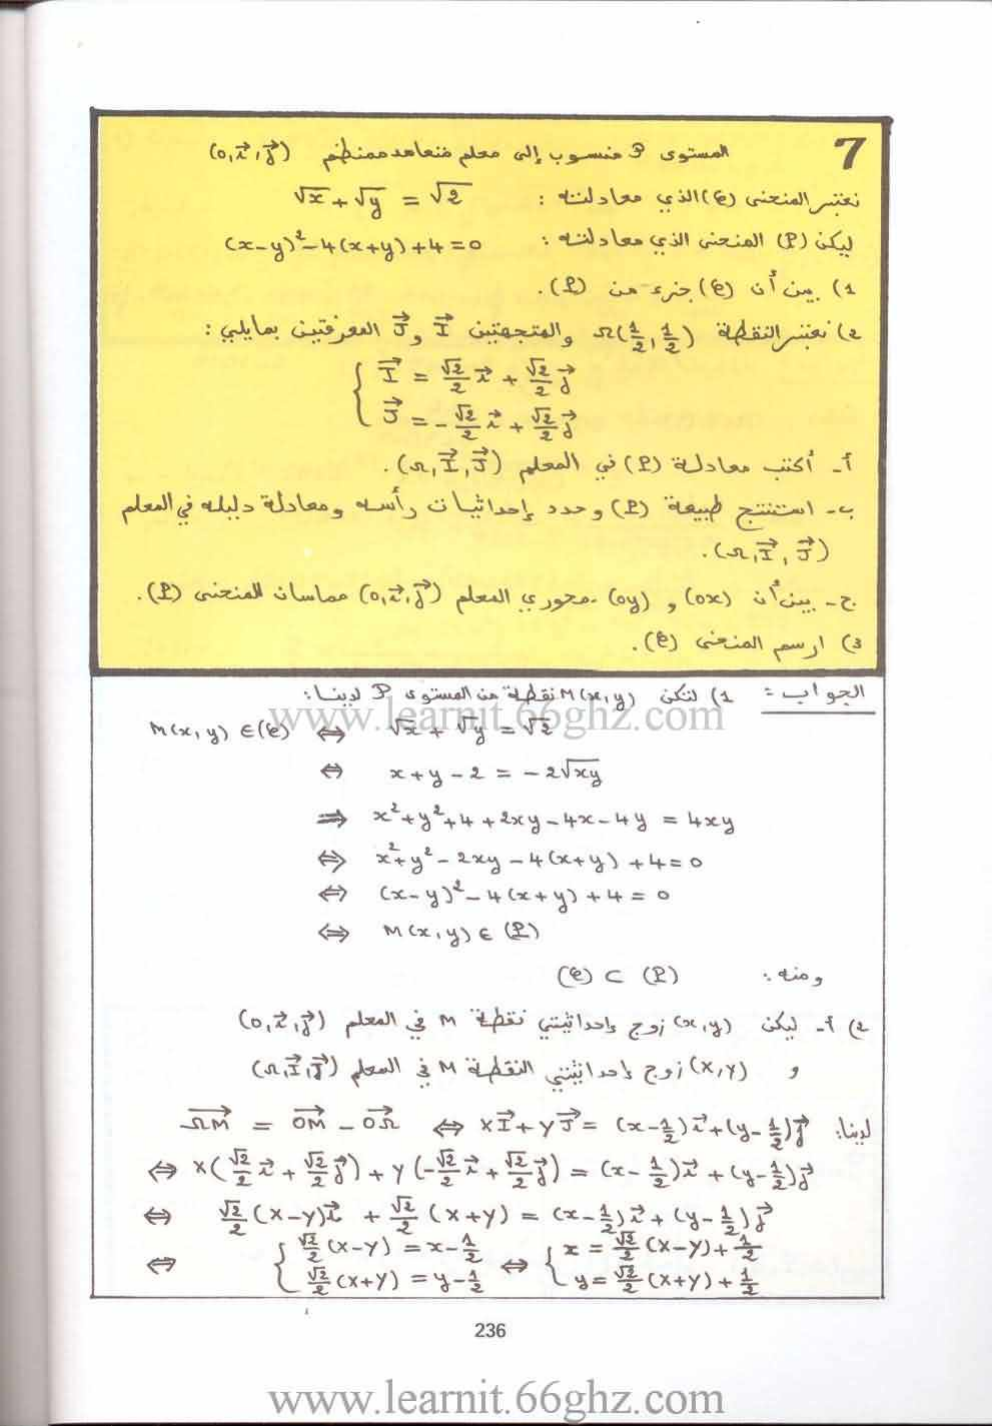 7 المستوى P منسوب إلى معلم متعامد ممنظم (o, i⃗, j⃗)
نعتبر المنحنى (C) الذي معادلته : √x + √y = √2
ليكن (P) المنحنى الذي معادلته : (x-y)² - 4(x+y) + 4 = 0
1) بين أن (C) جزء من (P).
2) نعتبر النقطة Ω(1/2, 1/2) والمتجهتين I⃗ و J⃗ المعرفتين بمايلي :
{ I⃗ = √2/2 i⃗ + √2/2 j⃗
J⃗ = -√2/2 i⃗ + √2/2 j⃗
أ- أكتب معادلة (P) في المعلم (Ω, I⃗, J⃗).
ب- استنتج طبيعة (P) وحدد إحداثيات رأسه ومعادلة دليله في المعلم
(Ω, I⃗, J⃗).
ج- بين أن (ox) و (oy) محوري المعلم (o, i⃗, j⃗) مماسان للمنحنى (P).
3) ارسم المنحنى (C).
الجواب : 1) لتكن M(x,y) نقطة من المستوى P لدينا:
www.learnit.66ghz.com
M(x,y) ∈ (C) ⇔ √x + √y = √2
⇔ x + y - 2 = -2√xy
⇒ x² + y² + 4 + 2xy - 4x - 4y = 4xy
⇔ x² + y² - 2xy - 4(x+y) + 4 = 0
⇔ (x-y)² - 4(x+y) + 4 = 0
⇔ M(x,y) ∈ (P)
ومنه : (C) ⊂ (P)
2) أ- ليكن (x,y) زوج إحداثيتي نقطة M في المعلم (o, i⃗, j⃗)
و (X,Y) زوج إحداثيتي النقطة M في المعلم (Ω, I⃗, J⃗)
لدينا: ΩM⃗ = OM⃗ - OΩ⃗ ⇔ XI⃗ + YJ⃗ = (x - 1/2)i⃗ + (y - 1/2)j⃗
⇔ X(√2/2 i⃗ + √2/2 j⃗) + Y(-√2/2 i⃗ + √2/2 j⃗) = (x - 1/2)i⃗ + (y - 1/2)j⃗
⇔ √2/2 (X-Y)i⃗ + √2/2 (X+Y) = (x - 1/2)i⃗ + (y - 1/2)j⃗
⇔ { √2/2 (X-Y) = x - 1/2 ⇔ { x = √2/2 (X-Y) + 1/2
√2/2 (X+Y) = y - 1/2 y = √2/2 (X+Y) + 1/2
236
www.learnit.66ghz.com